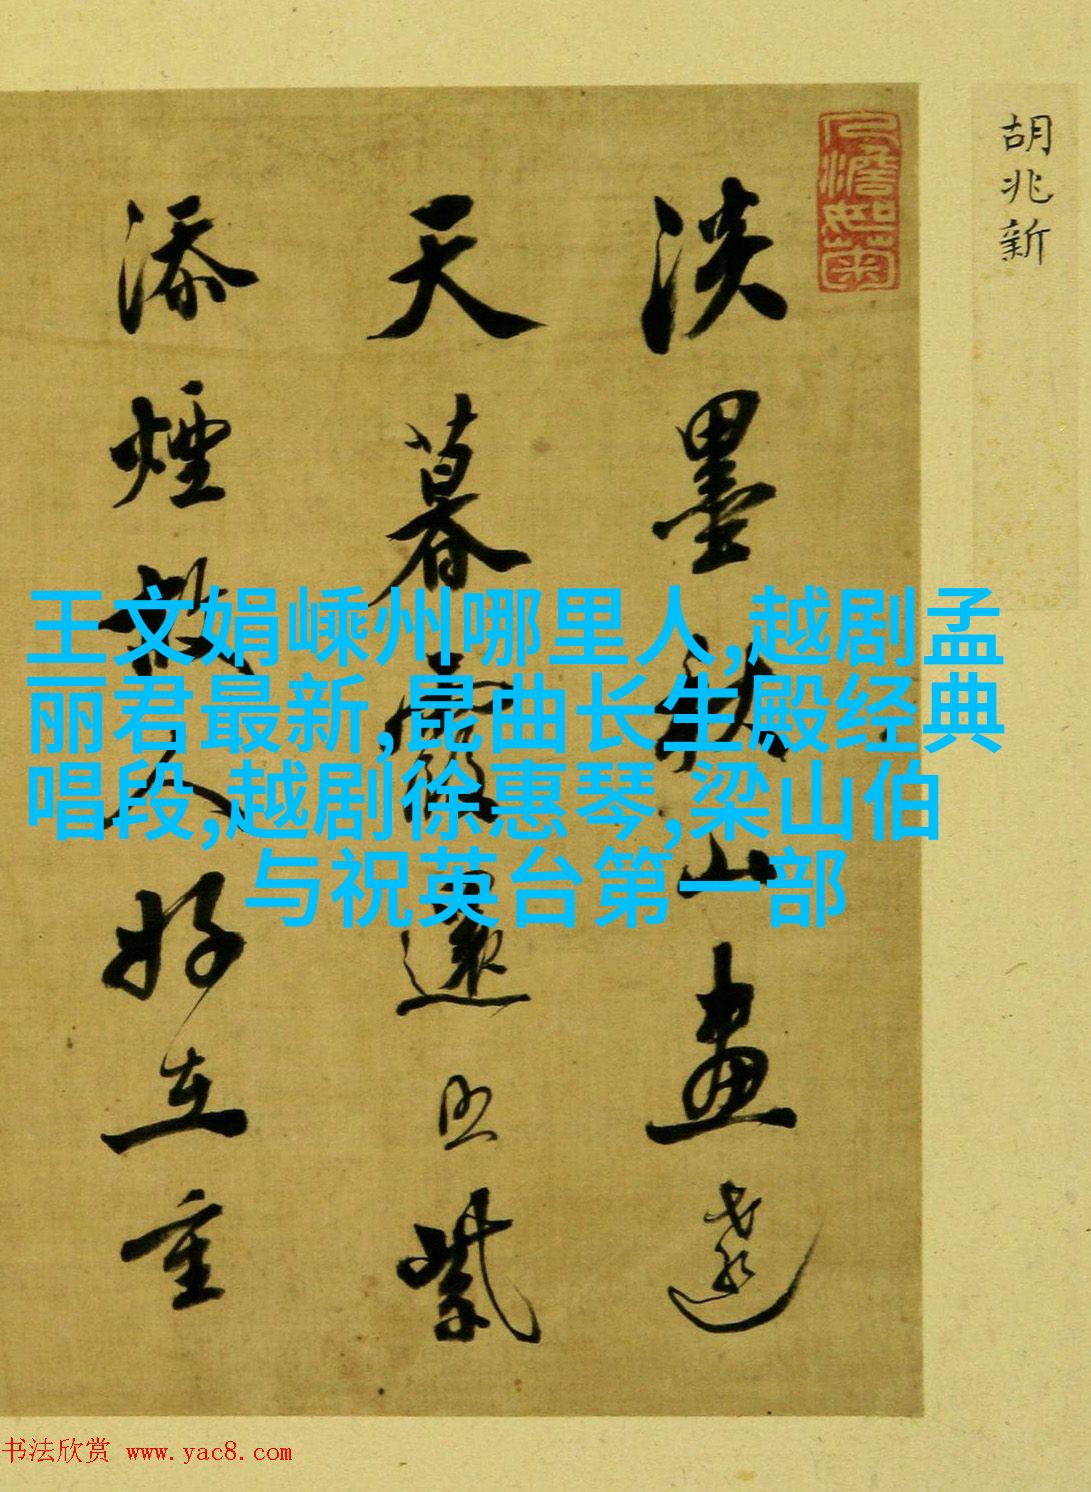 胡兆新
人澹如菊
淡墨秋山畫遠
天暮霞還照紫
添煙故人好在重
王文娟嵊州哪里人,越剧孟
丽君最新,昆曲长生殿经典
唱段,越剧徐惠琴,梁山伯
与祝英台第一部
书法欣赏 www.yac8.com